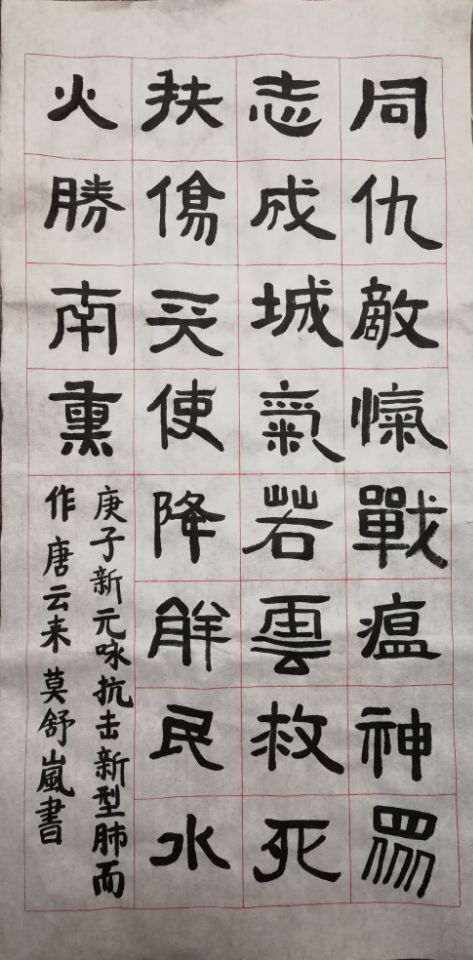 同仇敵愾戰瘟神眾
志成城氣若雲救死
扶傷天使降觧民水
火勝南熏
庚子新元咏抗击新型肺而
作 唐云来 莫舒嵐書